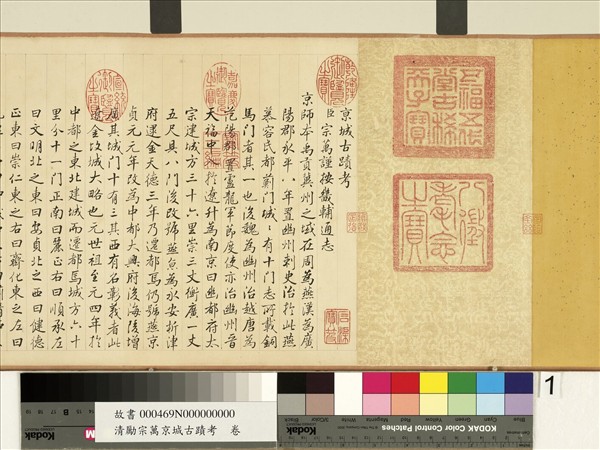 五福五代堂古稀天子寶
八徵耄念之寶
京城古蹟考
臣宗萬謹按畿輔通志
京師本禹貢冀州之域在周為燕漢為廣
陽郡永平八年置幽州刺史治於此燕
慕容氏都薊門城有十門志所載銅
馬門者其一也後魏為幽州治越唐為
范陽郡置盧龍軍節度使亦治幽州晉
天福中入於遼升為南京曰幽都府太
宗建城方三十六里崇三丈衡廣一丈
五尺具八門後改號燕京為永安析津
府逮金天德三年乃遷都焉仍號燕京
貞元元年改為中都大興府後海陵增
廣其城門十有三其西有名彰義者此
遼金改城大略也元世祖至元四年於
中都之東北建城而遷都焉城方六十
里分十一門正南曰麗正右曰順承左
曰文明北之東曰安貞北之西曰健德
正東曰崇仁東之右曰齊化東之左曰
故書 000469N000000000
清勵宗萬京城古蹟考 卷
KODAK Color Control Patches
Kodak
1